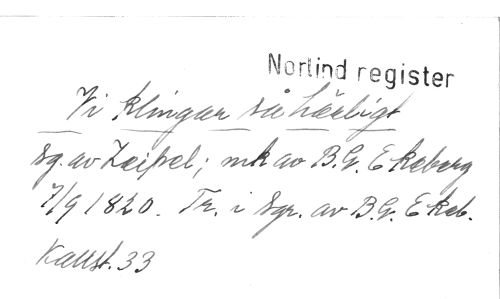 Norlind register
Vi klingar så härligt
Sg. av Zeipel; mk av B.G. Ekeberg
7/9 1820. Tr. i Sgr. av B.G. Ekeb.
Kallst. 33